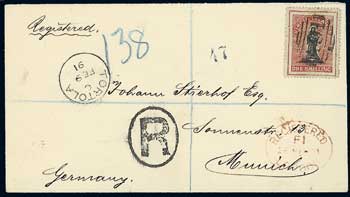 Registered.
138
17
ONE SHILLING
TORTOLA
FE 9
91
Johann Stierhof Esq.
R
Sonnenstr. 13.
REGISTERED
Munich
Germany.